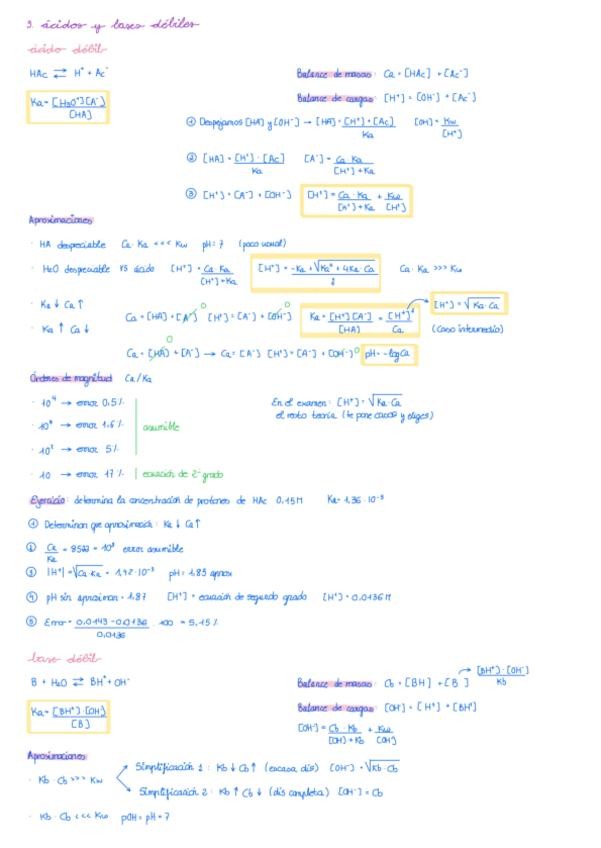 3. ácidos y bases débiles
ácido débil
HAc ⇄ H⁺ + Ac⁻
Balance de masas: Ca = [HAc] + [Ac⁻]
Balance de cargas: [H⁺] = [OH⁻] + [Ac⁻]
Ka = [H₃O⁺][A⁻] / [HA]
① Despejamos [HA] y [OH⁻] → [HA] = [H⁺]·[Ac] / Ka [OH] = Kw / [H⁺]
② [HA] = [H⁺]·[Ac] / Ka [A⁻] = Ca·Ka / [H⁺]+Ka
③ [H⁺] = [A⁻] + [OH⁻] [H⁺] = Ca·Ka / [H⁺]+Ka + Kw / [H⁺]
Aproximaciones
· HA despreciable Ca·Ka <<< Kw pH = 7 (poco usual)
· H₂O despreciable vs ácido [H⁺] = Ca·Ka / [H⁺]+Ka [H⁺] = -Ka + √Ka² + 4Ka·Ca / 2 Ca·Ka >>> Kw
· Ka ↓ Ca ↑ Ca = [HA] + [A⁻] 0 [H⁺] = [A⁻] + [OH⁻] 0 Ka = [H⁺][A⁻] / [HA] = [H⁺]² / Ca → [H⁺] = √Ka·Ca
· Ka ↑ Ca ↓ (caso intermedio)
Ca = [HA] 0 + [A⁻] → Ca = [A⁻] [H⁺] = [A⁻] + [OH⁻] 0 pH = -log Ca
Órdenes de magnitud Ca/Ka
· 10⁴ → error 0,5% En el examen: [H⁺] = √Ka·Ca
el resto teoría (te pone casos y eliges)
· → error 1,6% asumible
· 10² → error 5%
· 10 → error 17% ecuación de 2º grado
Ejercicio: determina la concentración de protones de HAc 0,15M Ka = 1,36·10⁻³
① Determinar que aproximación: Ka ↓ Ca ↑
② Ca / Ka = = 10³ error asumible
③ |H⁺| = √Ca·Ka = 1,42·10⁻² pH = 1,85 aprox
④ pH sin aproximar = 1,87 [H⁺] = ecuación de segundo grado [H⁺] = 0,0136M
⑤ Error = 0,0143 - 0,0136 / 0,0136 · 100 = 5,15%
base débil
B + H₂O ⇄ BH⁺ + OH⁻
Balance de masas: Cb = [BH] + [B] → [BH⁺]·[OH⁻] / Kb
Balance de cargas: [OH⁻] = [H⁺] + [BH⁺]
Ka = [BH⁺]·[OH] / [B]
[OH⁻] = Cb·Kb / [OH]+Kb + Kw / [OH]
Aproximaciones
· Kb·Cb >>> Kw
Simplificación 1: Kb ↓ Cb ↑ (escasa dis) [OH⁻] = √Kb·Cb
Simplificación 2: Kb ↑ Cb ↓ (dis completa) [OH⁻] = Cb
· Kb·Cb <<< Kw pOH = pH = 7